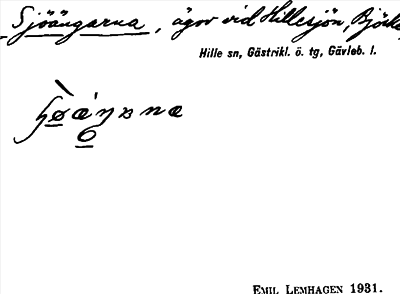 Sjöängarna, ägor vid Hillesjön, Björke
Hille sn, Gästrikl. ö. tg, Gävleb. l.
EMIL LEMHAGEN 1931.